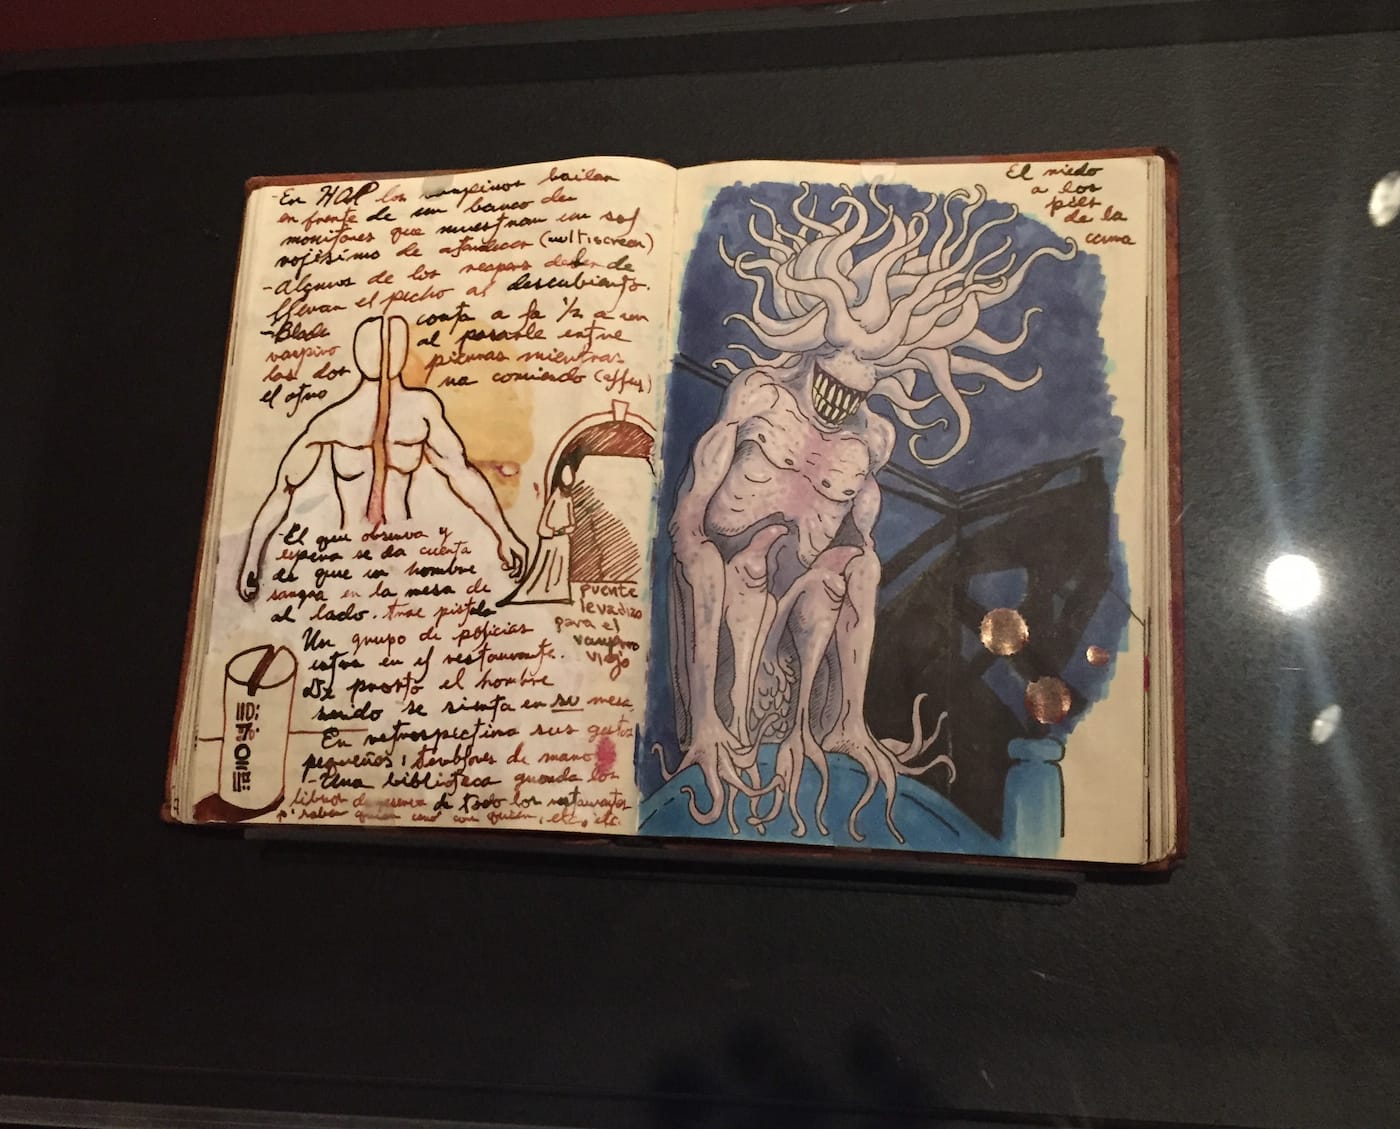 -En HOP los vampiros bailan
en frente de un banco de
monitores que muestran un sol
rojísimo de atardecer (multiscreen)
-Algunos de los reapers deben de
llevan el pecho al descubierto.
-Blade corta a la 1/2 a un
vampiro al pasarle entre
las dos piernas mientras
el otro va corriendo (affuq)
-El que observa y
espera se da cuenta
de que un hombre
sangra en la mesa de
al lado. trae pistola
Un grupo de policias
entra en el restaurante.
De pronto el hombre
se sienta en su mesa
En retrospectiva sus gestos
pequeños, temblores de mano
-Una biblioteca guarda los
libros de reserva de todo los restaurantes
p' saber quien cenó con quien, etc, etc.
puente
levadizo
para el
vampiro
viejo
El miedo
a los
pies
de la
cama